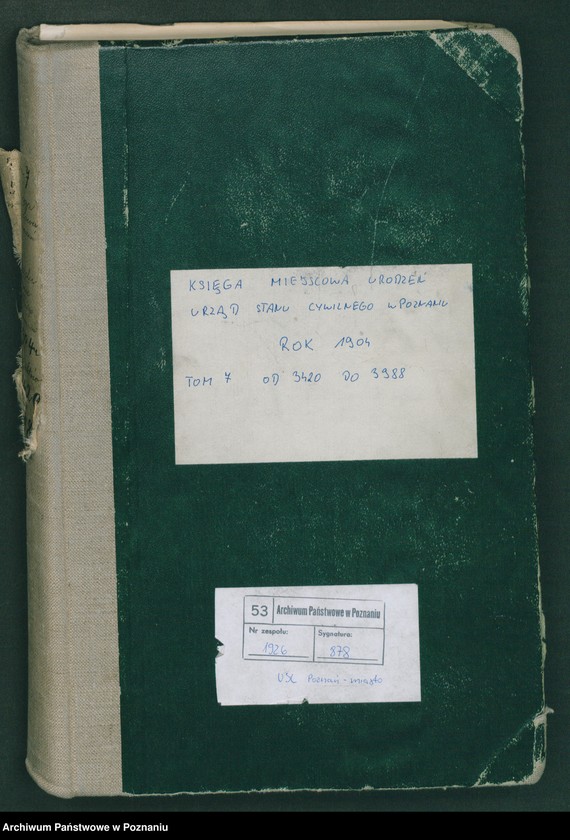 KSIĘGA MIEJSCOWA URODZEŃ
URZĄD STANU CYWILNEGO W POZNANIU
ROK 1904
TOM 7 OD 3420 DO 3988
53 Archiwum Państwowe w Poznaniu
Nr zespołu: Sygnatura:
1926 878
USC Poznań - miasto
Archiwum Państwowe w Poznaniu